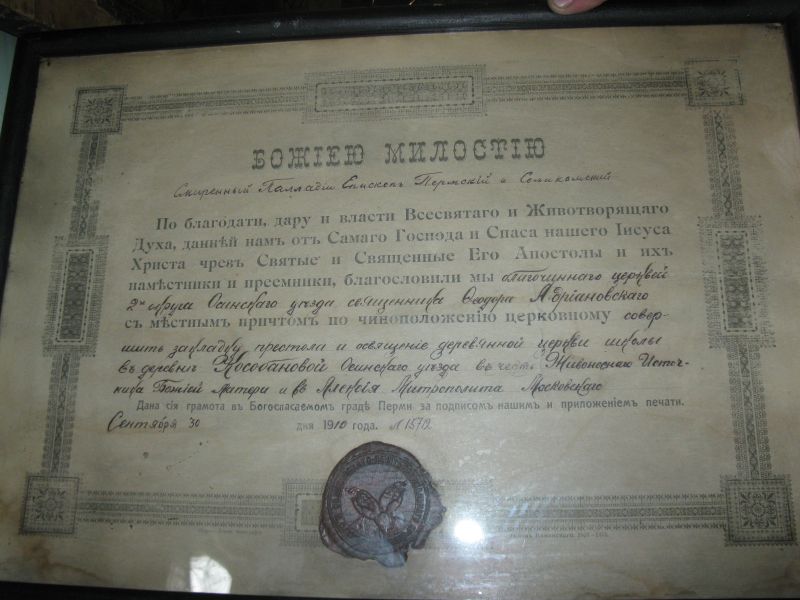 БОЖІЕЮ МИЛОСТІЮ
Смиренный Палладій Епископъ Пермскій и Соликамскій
По благодати, дару и власти Всесвятаго и Животворящаго
Духа, даннѣй намъ отъ Самаго Господа и Спаса нашего Іисуса
Христа чрезъ Святые и Священные Его Апостолы и ихъ
намѣстники и преемники, благословили мы благочиннаго церквей
2го округа Осинскаго уѣзда священника Ѳеодора
съ мѣстнымъ причтомъ по чиноположенію церковному совер-
шить закладку престола и освященіе деревянной церкви школы
въ деревнѣ Осинскаго уѣзда въ честь Живоноснаго Источ-
ника Божіей Матери и св Алексія Митрополита Московскаго
Дана сія грамота въ Богоспасаемомъ градѣ Перми за подписомъ нашимъ и приложеніемъ печати.
Сентября 30 дня 1910 года. № 1572